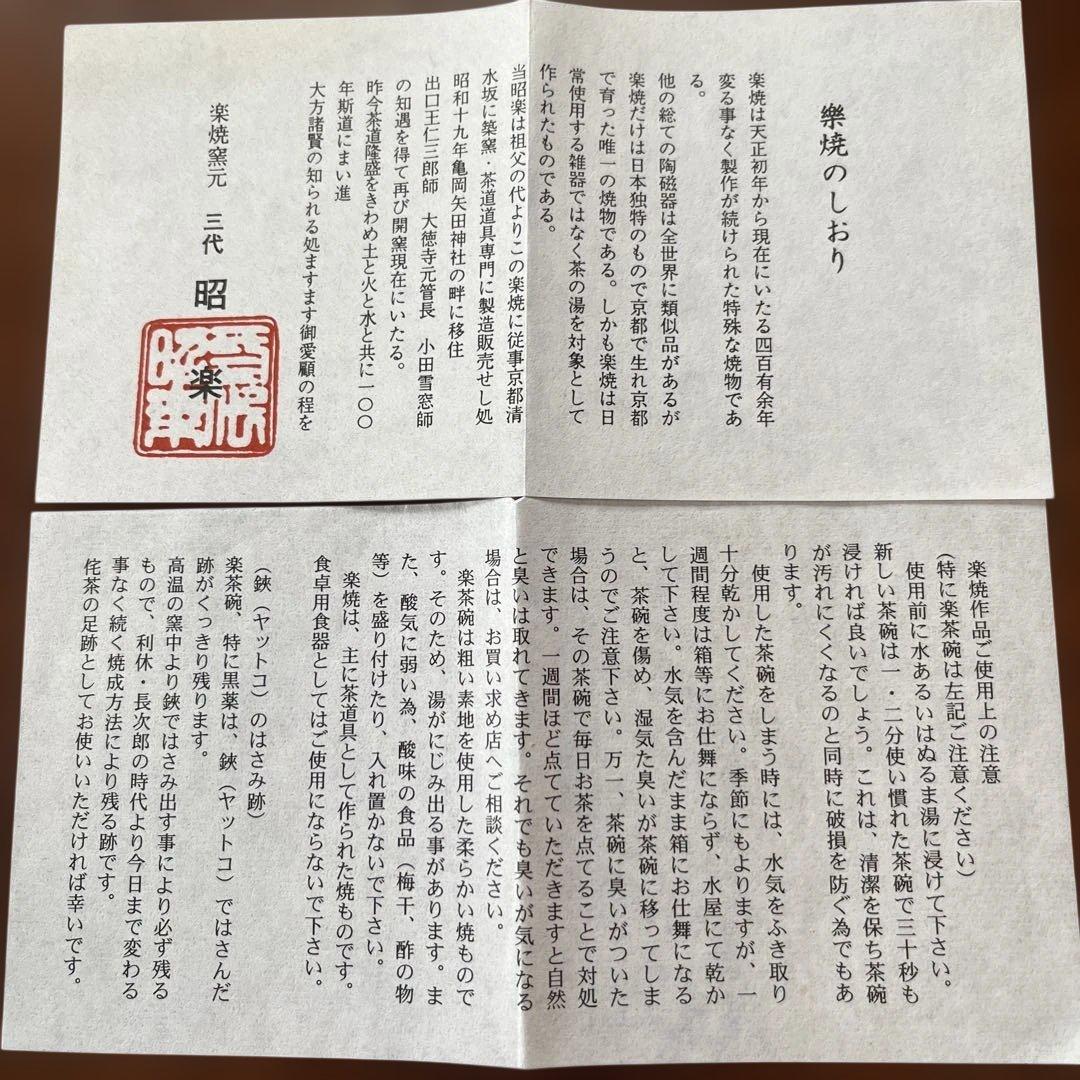 樂焼のしおり
楽焼は天正初年から現在にいたる四百有余年
変る事なく製作が続けられた特殊な焼物であ
る。
他の総ての陶磁器は全世界に類似品があるが
楽焼だけは日本独特のもので京都で生れ京都
で育った唯一の焼物である。しかも楽焼は日
常使用する雑器ではなく茶の湯を対象として
作られたものである。
当昭楽は祖父の代よりこの楽焼に従事京都清
水坂に築窯・茶道道具専門に製造販売せし処
昭和十九年亀岡矢田神社の畔に移住
出口王仁三郎師 大徳寺元管長 小田雪窓師
の知遇を得て再び開窯現在にいたる。
昨今茶道隆盛をきわめ土と火と水と共に一〇〇
年斯道にまい進
大方諸賢の知られる処ますます御愛顧の程を
楽焼窯元 三代 昭楽
楽焼作品ご使用上の注意
(特に楽茶碗は左記ご注意ください)
使用前に水あるいはぬるま湯に浸けて下さい。
新しい茶碗は一・二分使い慣れた茶碗で三十秒も
浸ければ良いでしょう。これは、清潔を保ち茶碗
が汚れにくくなるのと同時に破損を防ぐ為でもあ
ります。
使用した茶碗をしまう時には、水気をふき取り
十分乾かしてください。季節にもよりますが、一
週間程度は箱等にお仕舞にならず、水屋にて乾か
して下さい。水気を含んだまま箱にお仕舞になる
と、茶碗を傷め、湿気た臭いが茶碗に移ってしま
うのでご注意下さい。万一、茶碗に臭いがついた
場合は、その茶碗で毎日お茶を点てることで対処
できます。一週間ほど点てていただきますと自然
と臭いは取れてきます。それでも臭いが気になる
場合は、お買い求め店へご相談ください。
楽茶碗は粗い素地を使用した柔らかい焼もので
す。そのため、湯がにじみ出る事があります。ま
た、酸気に弱い為、酸味の食品(梅干、酢の物
等)を盛り付けたり、入れ置かないで下さい。
楽焼は、主に茶道具として作られた焼ものです。
食卓用食器としてはご使用にならないで下さい。
(鋏(ヤットコ)のはさみ跡)
楽茶碗、特に黒薬は、鋏(ヤットコ)ではさんだ
跡がくっきり残ります。
高温の窯中より鋏ではさみ出す事により必ず残る
もので、利休・長次郎の時代より今日まで変わる
事なく続く焼成方法により残る跡です。
侘茶の足跡としてお使いいただければ幸いです。